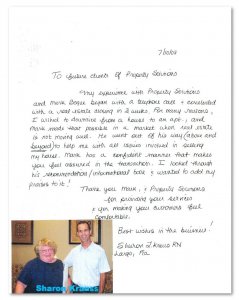 7/30/09
To future clients of Property Solutions
My experience with Property Solutions
and Mark began with a telephone call & concluded
with a real estate closing in 2 weeks. For many reasons,
I wished to downsize from a house to an apt., and
Mark made that possible in a market when real estate
is not moving well. He went out of his way (above and
beyond) to help me with all issues involved in selling
my house. Mark has a confident manner that makes
you feel assured in the transaction. I clicked through
his recommendation/ book & wanted to add my
praises to it!
Thank you Mark, & Property Solutions
for providing your service
& for making your customers feel
comfortable.
Best wishes in the business!
Sharon L Kraus RN
Largo,
Sharon Krauss